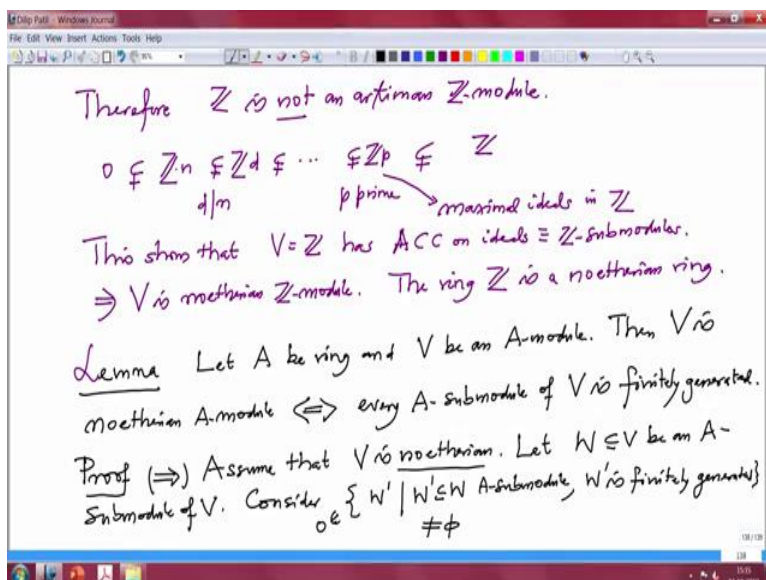 Dilip Patil - Windows Journal
File Edit View Insert Actions Tools Help
Therefore ℤ is not an artinian ℤ-module.
0 ⊊ ℤ·n ⊊ ℤd ⊊ ··· ⊊ ℤp ⊊ ℤ
d|n p prime maximal ideals in ℤ
This shows that V = ℤ has ACC on ideals ≡ ℤ-submodules.
⇒ V is noetherian ℤ-module. The ring ℤ is a noetherian ring.
Lemma Let A be ring and V be an A-module. Then V is
noetherian A-module ⇔ every A-submodule of V is finitely generated.
Proof (⇒) Assume that V is noetherian. Let W ⊆ V be an A-
submodule of V. Consider 0 ∈ { W' | W' ⊆ W A-submodule, W' is finitely generated}
≠ ϕ
138/139
138
15:15